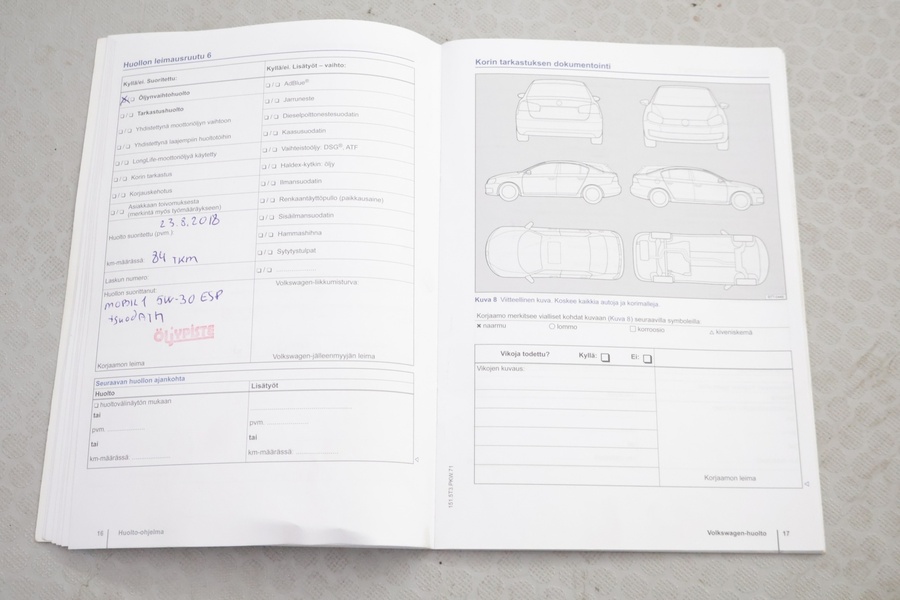 Huollon leimausruutu 6
Kyllä/ei. Suoritettu:
Öljynvaihtohuolto
Tarkastushuolto
Yhdistettynä moottoriöljyn vaihtoon
Yhdistettynä laajempiin huoltotöihin
LongLife-moottoriöljyä käytetty
Korin tarkastus
Korjauskehotus
Asiakkaan toivomuksesta
(merkintä myös työmääräykseen)
23.8.2018
Huolto suoritettu (pvm.)
km-määrässä: 84 TKM
Laskun numero:
Huollon suorittanut:
MOBIL 1 5W-30 ESP
+SUODATIN
ÖLJYPISTE
Korjaamon leima
Kyllä/ei. Lisätyöt – vaihto:
AdBlue®
Jarruneste
Dieselpolttonestesuodatin
Kaasusuodatin
Vaihteistoöljy: DSG®, ATF
Haldex-kytkin: öljy
Ilmansuodatin
Renkaantäyttöpullo (paikkausaine)
Sisäilmansuodatin
Hammashihna
Sytytystulpat
Volkswagen-liikkumisturva:
Volkswagen-jälleenmyyjän leima
Seuraavan huollon ajankohta
Huolto
huoltovälinäytön mukaan
tai
pvm.
tai
km-määrässä:
Lisätyöt
pvm.
tai
km-määrässä:
16 Huolto-ohjelma
Korin tarkastuksen dokumentointi
Kuva 8 Viitteellinen kuva. Koskee kaikkia autoja ja korimalleja.
Korjaamo merkitsee vialliset kohdat kuvaan (Kuva 8) seuraavilla symboleilla:
naarmu lommo korroosio kiveniskemä
Vikoja todettu? Kyllä: Ei:
Vikojen kuvaus:
Korjaamon leima
151.5T3.PKW.71
Volkswagen-huolto 17